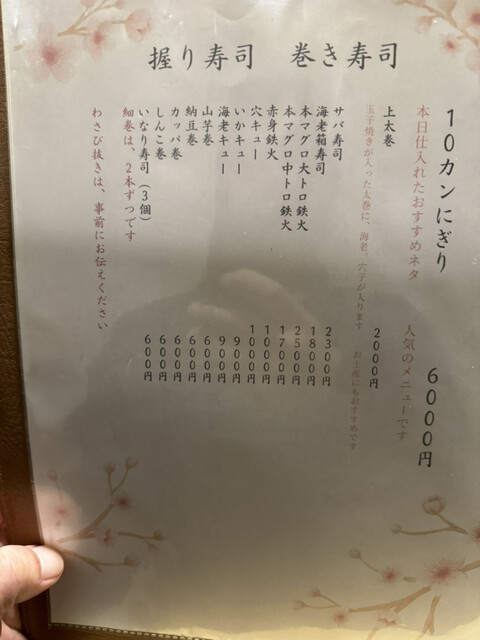 握り寿司　巻き寿司
10カンにぎり　6000円
本日仕入れたおすすめネタ　人気のメニューです
上太巻　2000円
玉子焼きが入った太巻に、海老、穴子が入ります　お土産にもおすすめです
サバ寿司　2300円
海老箱寿司　1800円
本マグロ大トロ鉄火　2500円
本マグロ中トロ鉄火　1700円
赤身鉄火　1000円
穴キュー　1000円
いかキュー　900円
海老キュー　900円
山芋巻　600円
納豆巻　600円
カッパ巻　600円
しんこ巻　600円
いなり寿司（3個）　600円
細巻は、2本ずつです
わさび抜きは、事前にお伝えください